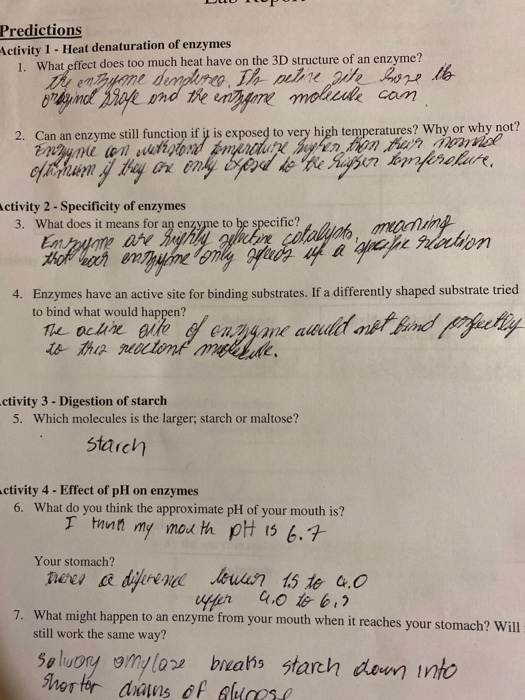 Predictions
Activity 1 - Heat denaturation of enzymes
1. What effect does too much heat have on the 3D structure of an enzyme?
the enzyme Its active site lose its
original shape and the enzyme molecule can
2. Can an enzyme still function if it is exposed to very high temperatures? Why or why not?
Enzyme can withstand temperature higher than their normal
optimum if they are only exposed to the higher temperature.
Activity 2 - Specificity of enzymes
3. What does it means for an enzyme to be specific?
Enzyme are highly selective catalysts, meaning
that each enzyme only speeds up a specific reaction
4. Enzymes have an active site for binding substrates. If a differently shaped substrate tried
to bind what would happen?
The active site of enzyme would not bind perfectly
to this reactant molecule.
Activity 3 - Digestion of starch
5. Which molecules is the larger; starch or maltose?
starch
Activity 4 - Effect of pH on enzymes
6. What do you think the approximate pH of your mouth is?
I think my mouth pH is 6.7
Your stomach?
difference lower 1.5 to 4.0
upper 4.0 to 6.5
7. What might happen to an enzyme from your mouth when it reaches your stomach? Will
still work the same way?
Salivary amylase breaks starch down into
shorter chains of glucose